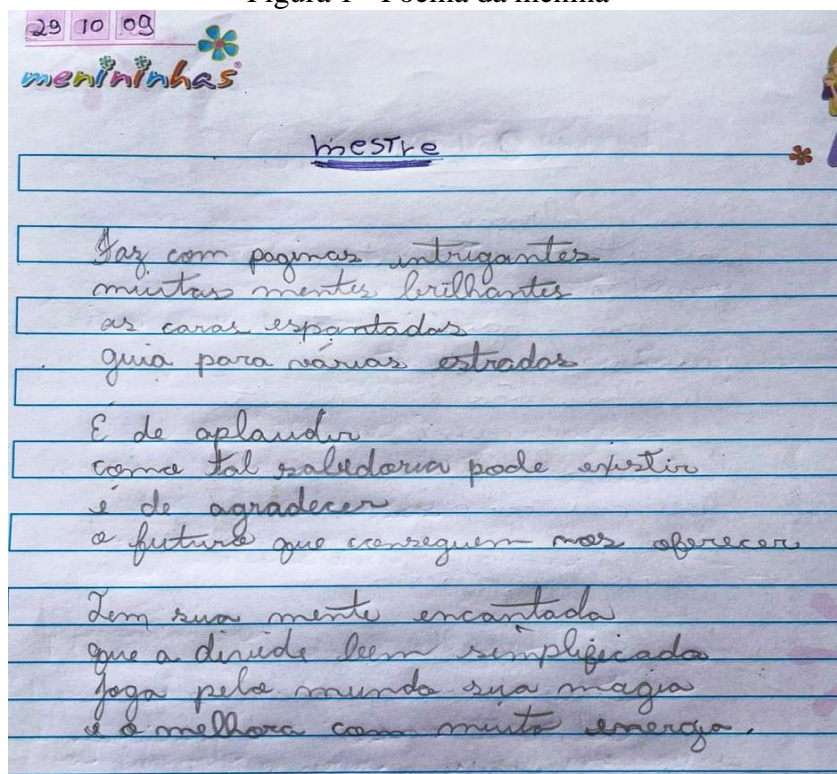 Figura 1 - Poema da menina
29 10 09
menininhas
mestre
Faz com paginas intrigantes
muitas mentes brilhantes
as caras espantadas
guia para várias estradas
É de aplaudir
como tal sabedoria pode existir
e de agradecer
o futuro que conseguem nos oferecer
Tem sua mente encantada
que a divide bem simplificada
joga pelo mundo sua magia
e o melhora com muita energia.